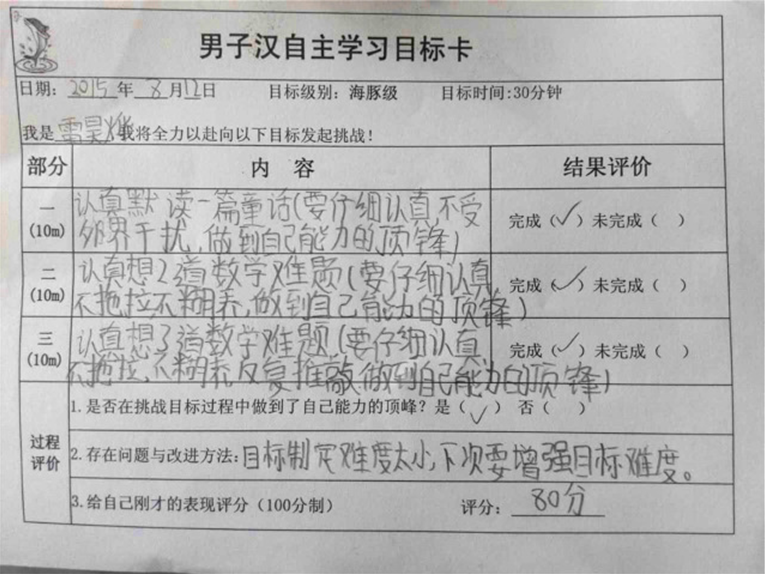 男子汉自主学习目标卡
日期: 2015 年 8 月 12 日 目标级别: 海豚级 目标时间:30分钟
我是 雷昊烨 我将全力以赴向以下目标发起挑战!
部分 内 容 结果评价
一 (10m) 认真默读一篇童话(要仔细认真,不受 完成(✓)未完成( )
外界干扰,做到自己能力的顶锋)
二 (10m) 认真想2道数学难题(要仔细认真 完成(✓)未完成( )
不拖拉不糊弄,做到自己能力的顶锋)
三 (10m) 认真想3道数学难题(要仔细认真 完成(✓)未完成( )
不拖拉,不糊弄反复推敲做到自己能力的顶锋)
过程评价
1.是否在挑战目标过程中做到了自己能力的顶峰? 是(✓) 否( )
2.存在问题与改进方法:目标制定难度太小,下次要增强目标难度。
3.给自己刚才的表现评分(100分制) 评分: 80分